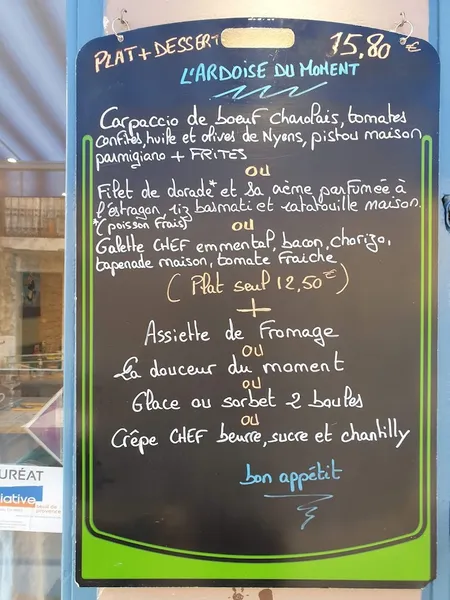 PLAT + DESSERT 15,80 €
L'ARDOISE DU MOMENT
Carpaccio de boeuf charolais, tomates
confites, huile et olives de Nyons, pistou maison,
parmigiano + FRITES
OU
Filet de dorade* et sa crème parfumée à
l'estragon, riz basmati et ratatouille maison.
*(poisson frais)
OU
Galette CHEF emmental, bacon, chorizo,
tapenade maison, tomate fraîche
(Plat seul 12,50 €)
+
Assiette de Fromage
OU
La douceur du moment
OU
Glace ou sorbet 2 boules
OU
Crêpe CHEF beurre, sucre et chantilly
bon appétit
URÉAT
iative